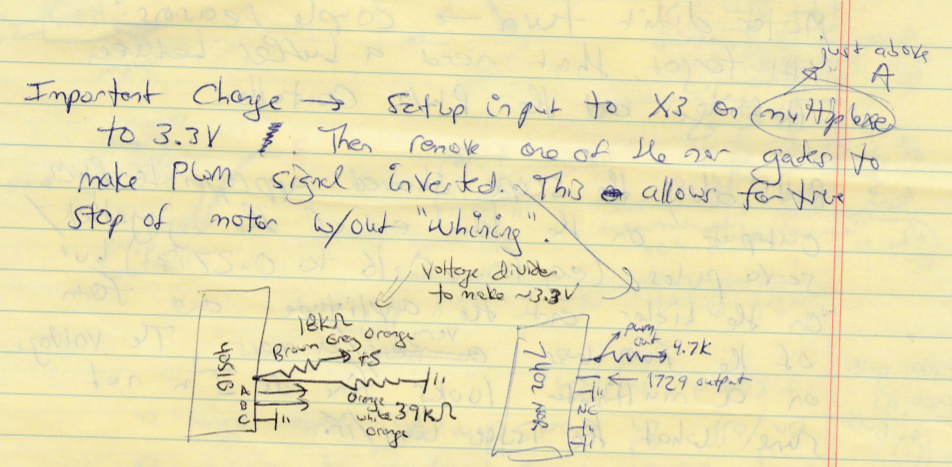 just above
A
Important Change → Setup input to X3 on multiplexer
to 3.3V. Then remove one of the nor gates to
make PWM signal inverted. This allows for true
stop of motor w/out "whining".
Voltage divider
to make ~3.3V
18KΩ
Brown Grey Orange
+5
4051B
A
B
C
Orange
white
orange
39KΩ
7402 NOR
pwm
out
4.7K
← 1729 output
NC